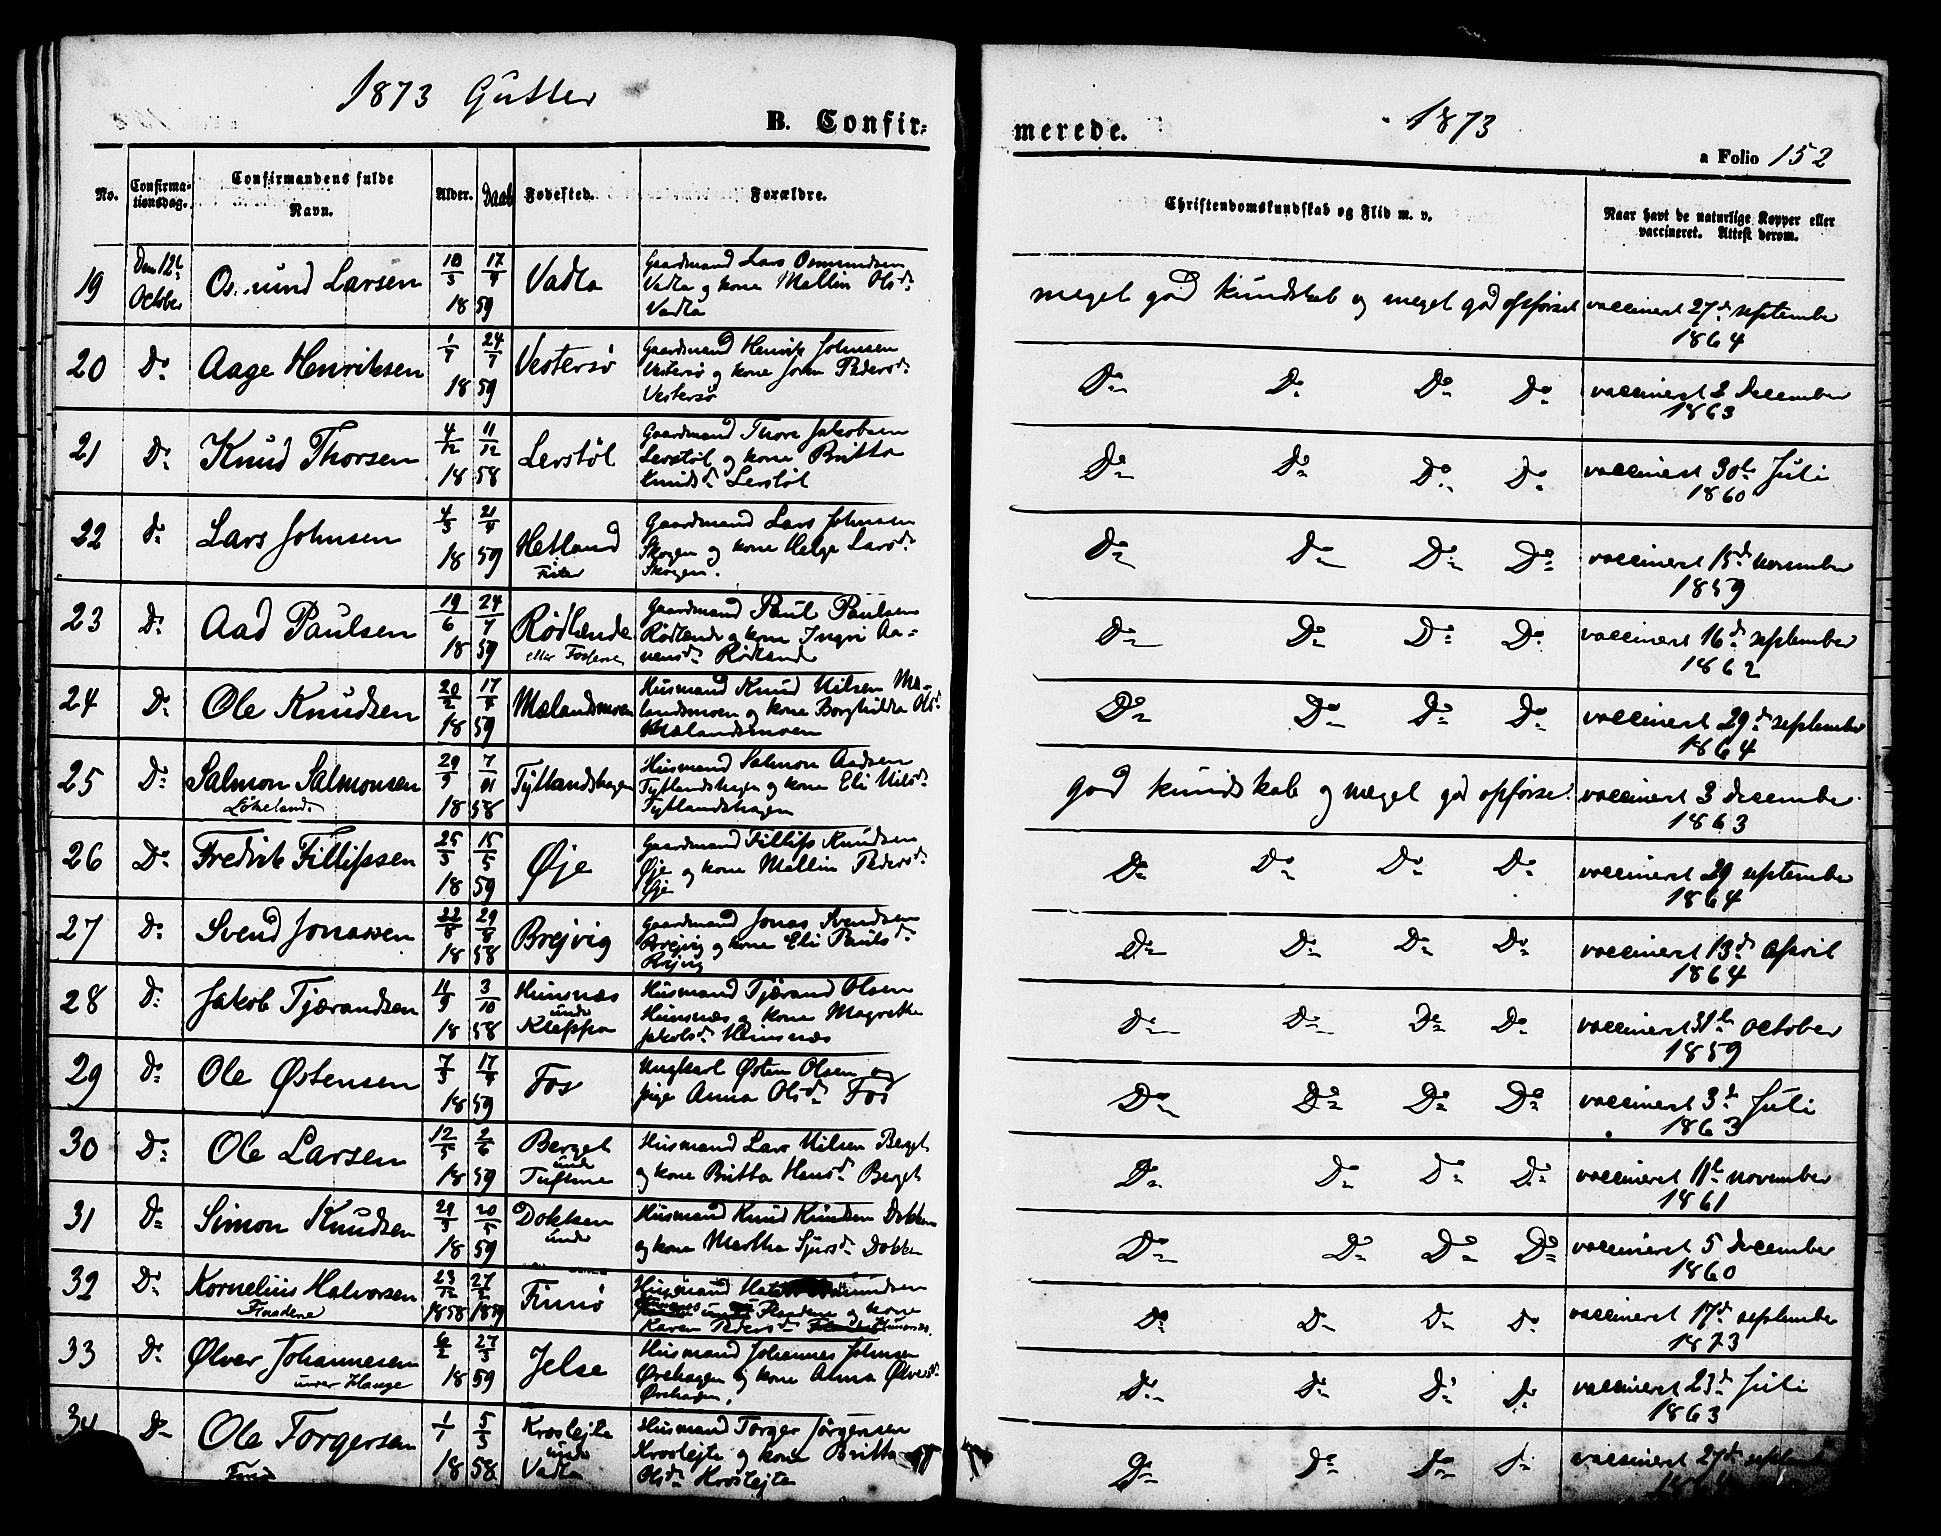 1873 Gutter
B. Confir-
merede.
1873
a Folio 152
No.
Confirma-
tionsdag.
Confirmandens fulde
Navn.
Alder.
Daab
Fødested.
Forældre.
Christendomskundskab og Flid m. v.
Naar havt de naturlige Kopper eller
vaccineret. Attest derom.
19 Den 12te October Osmund Larsen 10/3 17/4 1859 Vadla
Gaardmand Lars Osmundsen
Vadla og kone Mallin Olsdr
Vadla
meget god kundskab og meget god opførsel vaccineret 27de september
1864
20 Do Aage Henriksen 24/7 1859 Vestersø
Gaardmand Henrik Johnsen
Vestersø og kone Pedersdr
Vestersø
Do Do Do Do vaccineret 2 December
1863
21 Do Knud Thorsen 4/12 11/12 1858 Lerstøl
Gaardmand Thore Jakobsen
Lerstøl og kone Britta
Knudsdr Lerstøl
Do Do Do Do vaccineret 30te Juli
1860
22 Do Lars Johnsen 4/3 21/4 1859 Hetland
Gaardmand Lars Johnsen
Skogen og kone Helge Larsdr
Skogen.
Do Do Do Do vaccineret 15de november
1859
23 Do Aad Paulsen 19/6 24/7 1859 Rødlende
eller
Gaardmand Paul Paulsen
Rødlende og kone Ingri Aa-
nensdr Rødlende
Do Do Do Do vaccineret 16de september
1862
24 Do Ole Knudsen 20/2 17/4 1859 Mælandsmoen
Husmand Knud Nilsen Mæ-
landsmoen og kone Borghilda Olsdr
Mælandsmoen
Do Do Do Do vaccineret 29de september
1864
25 Do Salmon Salmonsen 29/9 7/11 1858 Tytlandshagen
Løkeland
Husmand Salmon Aadsen
Tytlandshagen og kone Eli Nilsdr
Tytlandshagen
god kundskab og meget god opførsel. vaccineret 3 december
1863
26 Do Fredrik Fillipssen 25/3 15/5 1859 Øje
Gaardmand Fillip Knudsen
Øje og kone Mallin Pedersdr
Øje
Do Do Do Do vaccineret 29 september
1864
27 Do Svend Jonassen 22/8 29/8 1858 Brejvig
Gaardmand Jonas Svendsen
Brejvig og kone Eli Paulsdr
Brejvig
Do Do Do Do vaccineret 13de April
1864
28 Do Jakob Tjærandsen 11/9 3/10 1858 Himsnæs
under
Kleppa
Husmand Tjærand Olsen
Himsnæs og kone Magrethe
Jakobsdr Himsnæs
Do Do Do Do vaccineret 31te October
1859
29 Do Ole Østensen 7/3 17/4 1859 Fos
Ungkarl Østen Olsen og
pige Anna Olsdr Fos
Do Do Do Do vaccineret 3de Juli
1863
30 Do Ole Larsen 12/5 2/6 1859 Berget
under
Tuftene
Husmand Lars Nilsen Berget
og kone Britta Hansdr Berget
Do Do Do Do vaccineret 11te november
1861
31 Do Simon Knudsen 29/3 20/5 1859 Dokken
under
Husmand Knud Knudsen Dokken
og kone Martha Sjursdr Dokken
Do Do Do Do vaccineret 5 December
1860
32 Do Kornelius Halvorsen 23/12 1858 27/2 1859 Finnø
Flaadene
Husmand
under Flaadene og kone
Karen Pedersdr
Do Do Do Do vaccineret 17de september
1873
33 Do Ølver Johannesen 6/2 27/3 1859 Jelse
under Hauge
Husmand Johannes Johnsen
Ørehagen og kone Alma Ølversdr
Ørehagen.
Do Do Do Do vaccineret 23de Juli
1863
34 Do Ole Torgersen 1/1 5/3 1858 Kroslejte
under
Vadla
Husmand Torger Jørgensen
Kroslejte og kone Britta
Olsdr Kroslejte
Do Do Do Do vaccineret 27de